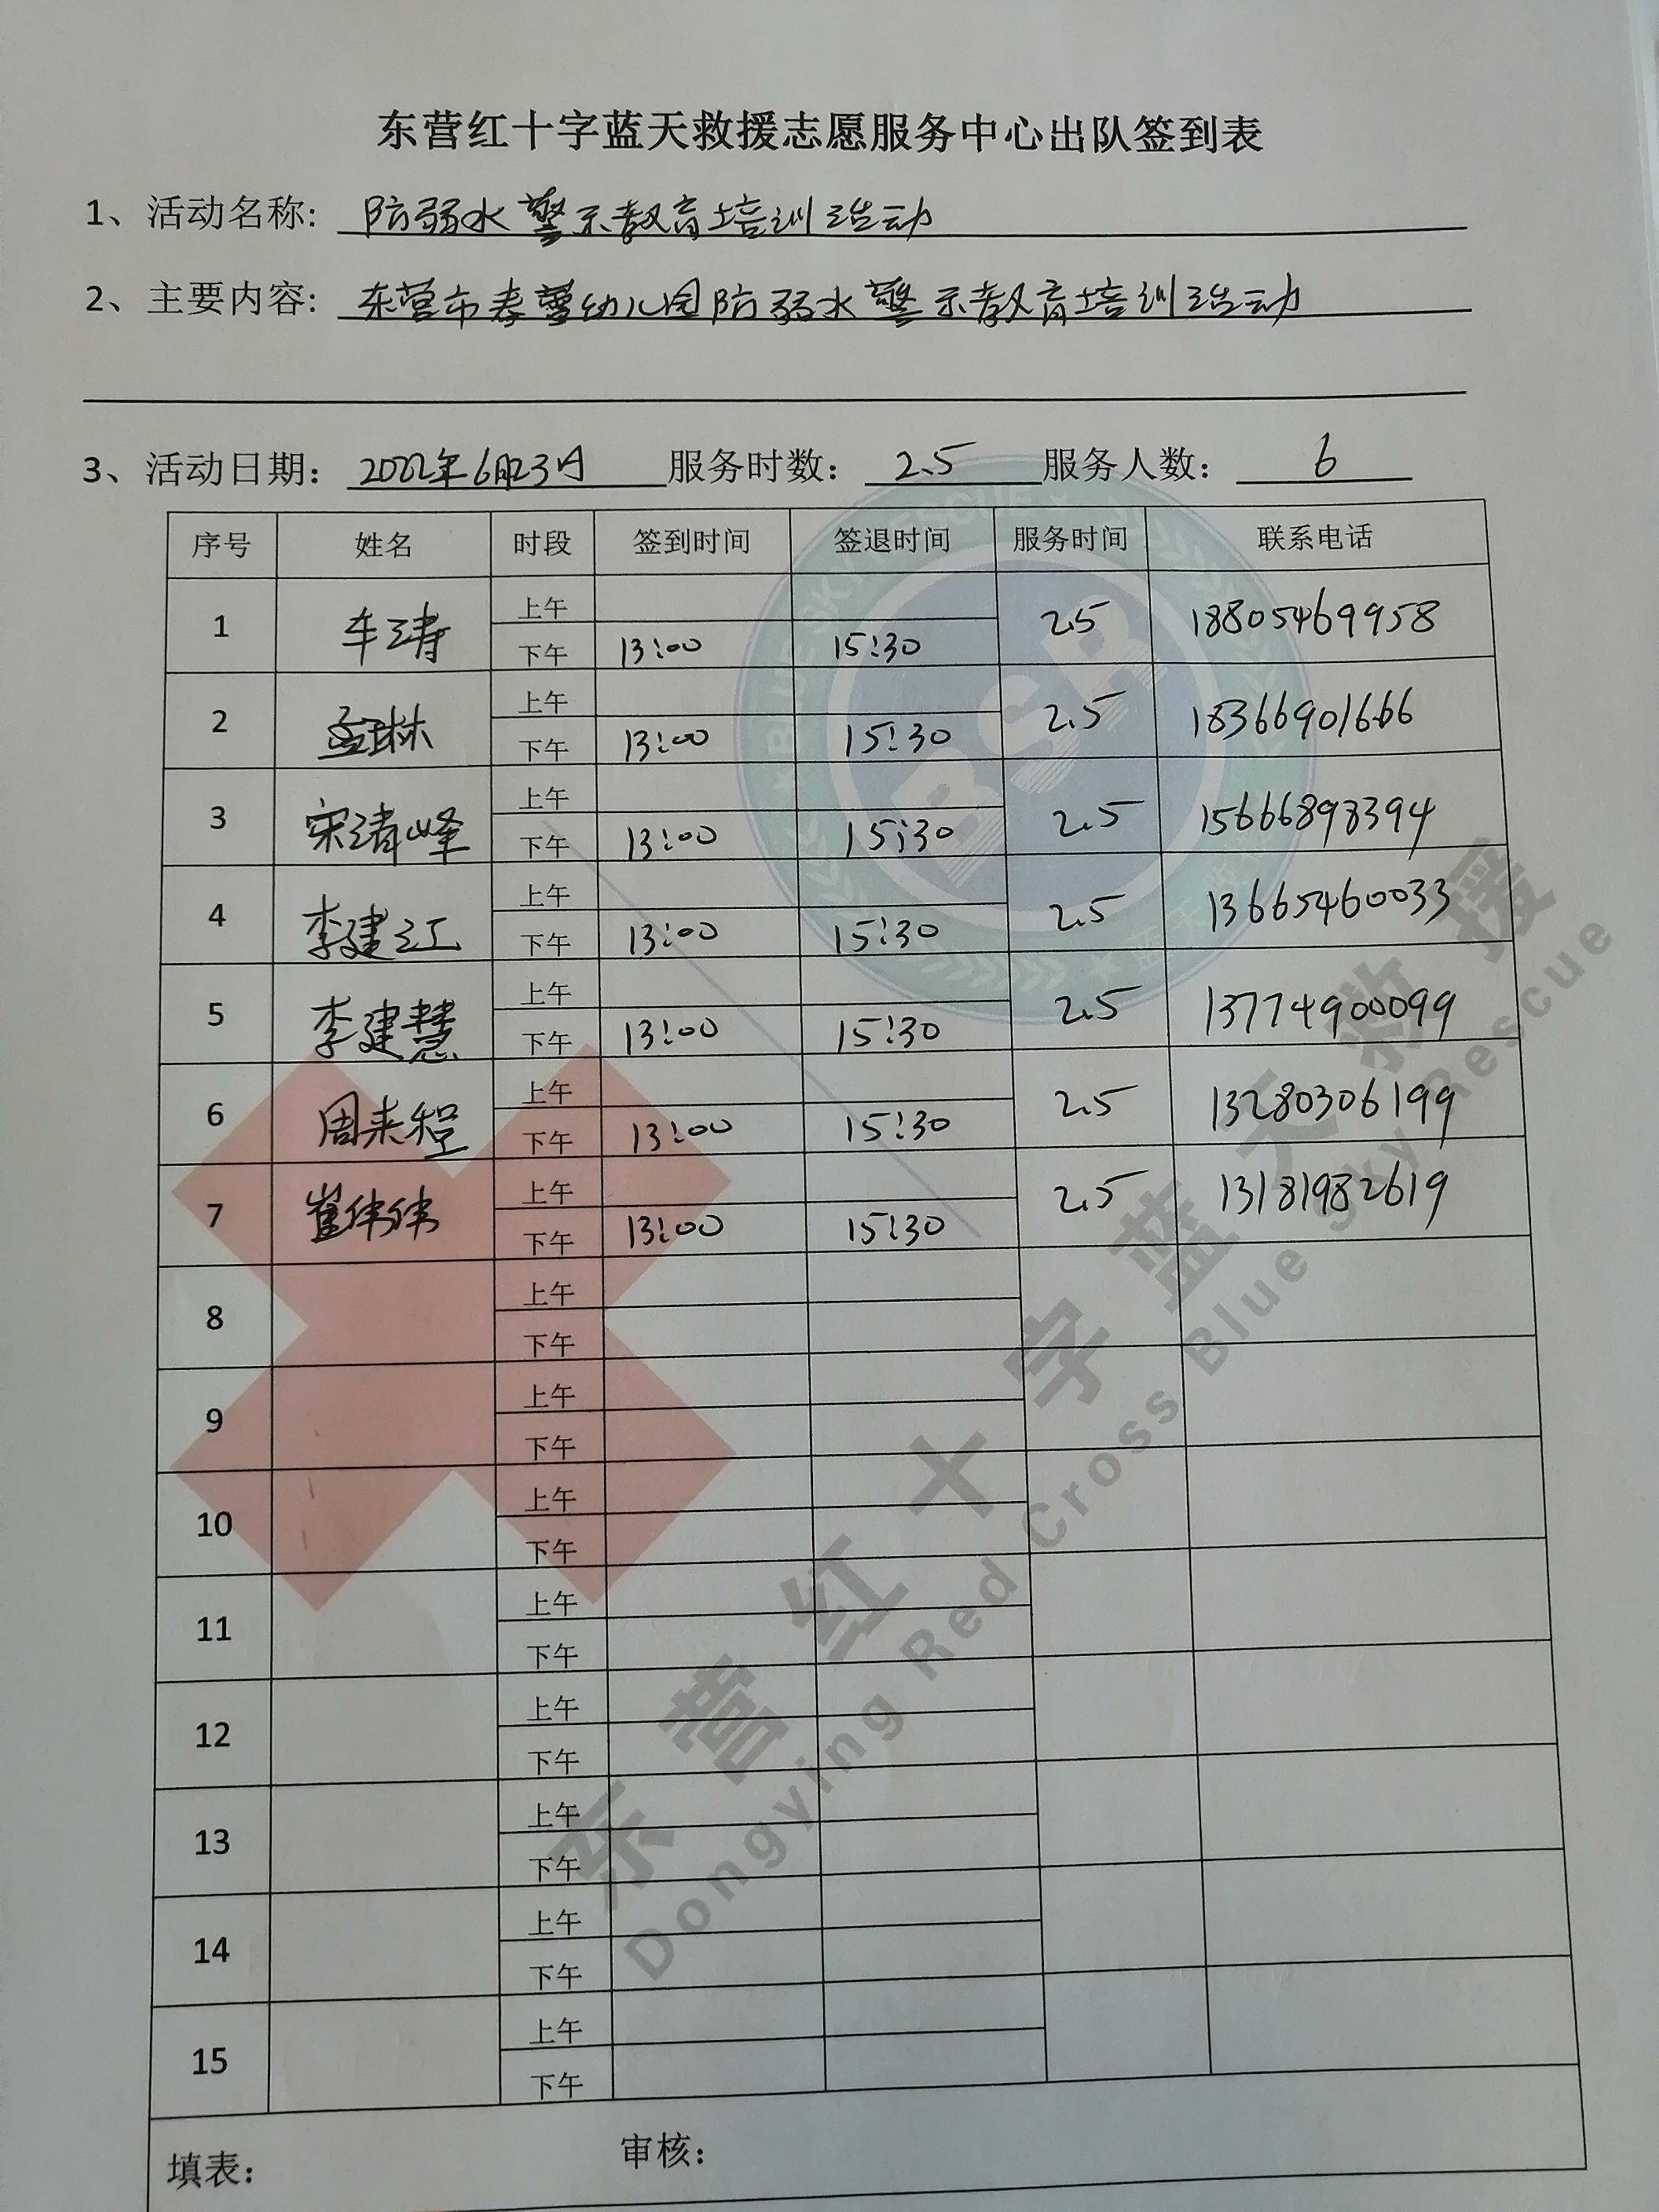 东营红十字蓝天救援志愿服务中心出队签到表
1、活动名称: 防弱水警示教育培训活动
2、主要内容: 东营市春蕾幼儿园防弱水警示教育培训活动
3、活动日期: 2022年6月23日 服务时数: 2.5 服务人数: 6
序号 姓名 时段 签到时间 签退时间 服务时间 联系电话
1 车涛 上午 2.5 18805469958
下午 13:00 15:30
2 孟琳 上午 2.5 18366901666
下午 13:00 15:30
3 宋清峰 上午 2.5 15666898394
下午 13:00 15:30
4 李建江 上午 2.5 13665460033
下午 13:00 15:30
5 李建慧 上午 2.5 13774900099
下午 13:00 15:30
6 周来程 上午 2.5 13280306199
下午 13:00 15:30
7 崔伟伟 上午 2.5 13181982619
下午 13:00 15:30
8 上午
下午
9 上午
下午
10 上午
下午
11 上午
下午
12 上午
下午
13 上午
下午
14 上午
下午
15 上午
下午
填表: 审核:
东营红十字蓝天救援
Dongying Red Cross Blue Sky Rescue
BLUE SKY RESCUE
BSR